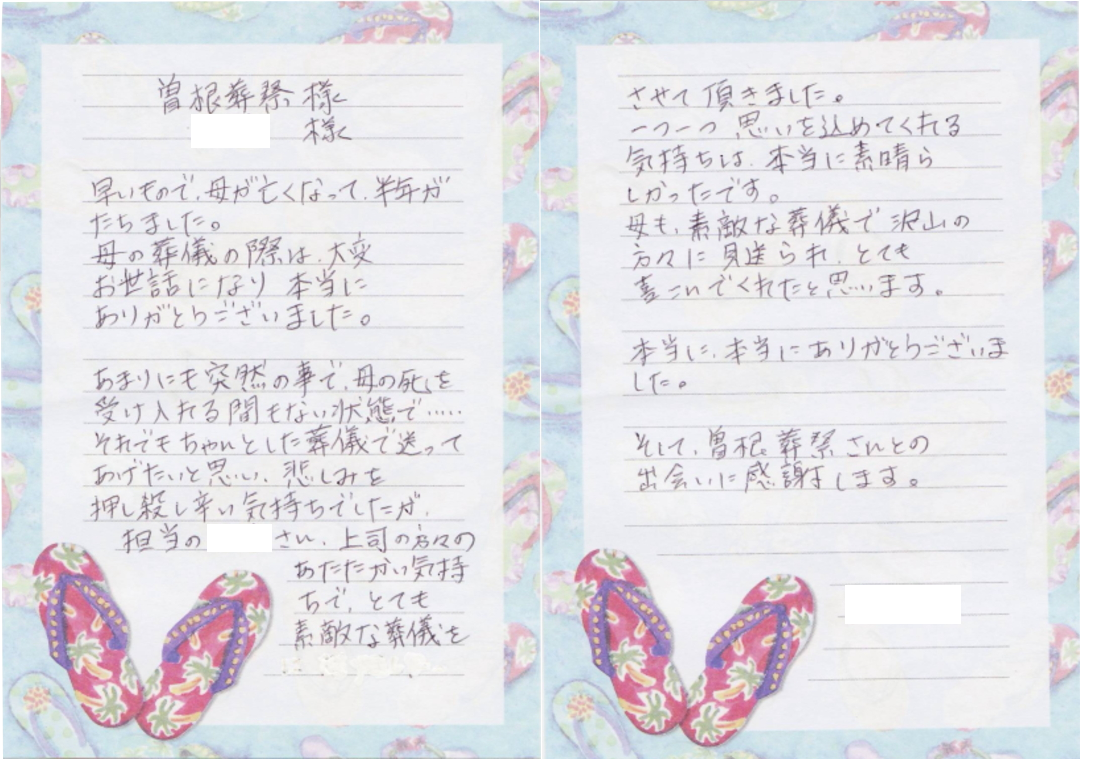 曽根葬祭様
様
早いもので、母が亡くなって、半年が
たちました。
母の葬儀の際は、大変
お世話になり 本当に
ありがとうございました。
あまりにも突然の事で、母の死を
受け入れる間もない状態で……
それでもちゃんとした葬儀で送って
あげたいと思い、悲しみを
押し殺し辛い気持ちでしたが、
担当の さん、上司の方々の
あたたかい気持
ちで、とても
素敵な葬儀を
させて頂きました。
一つ一つ 思いを込めてくれる
気持ちは、本当に素晴ら
しかったです。
母も、素敵な葬儀で沢山の
方々に見送られ、とても
喜こんでくれたと思います。
本当に、本当にありがとうございま
した。
そして、曽根葬祭さんとの
出会いに感謝します。